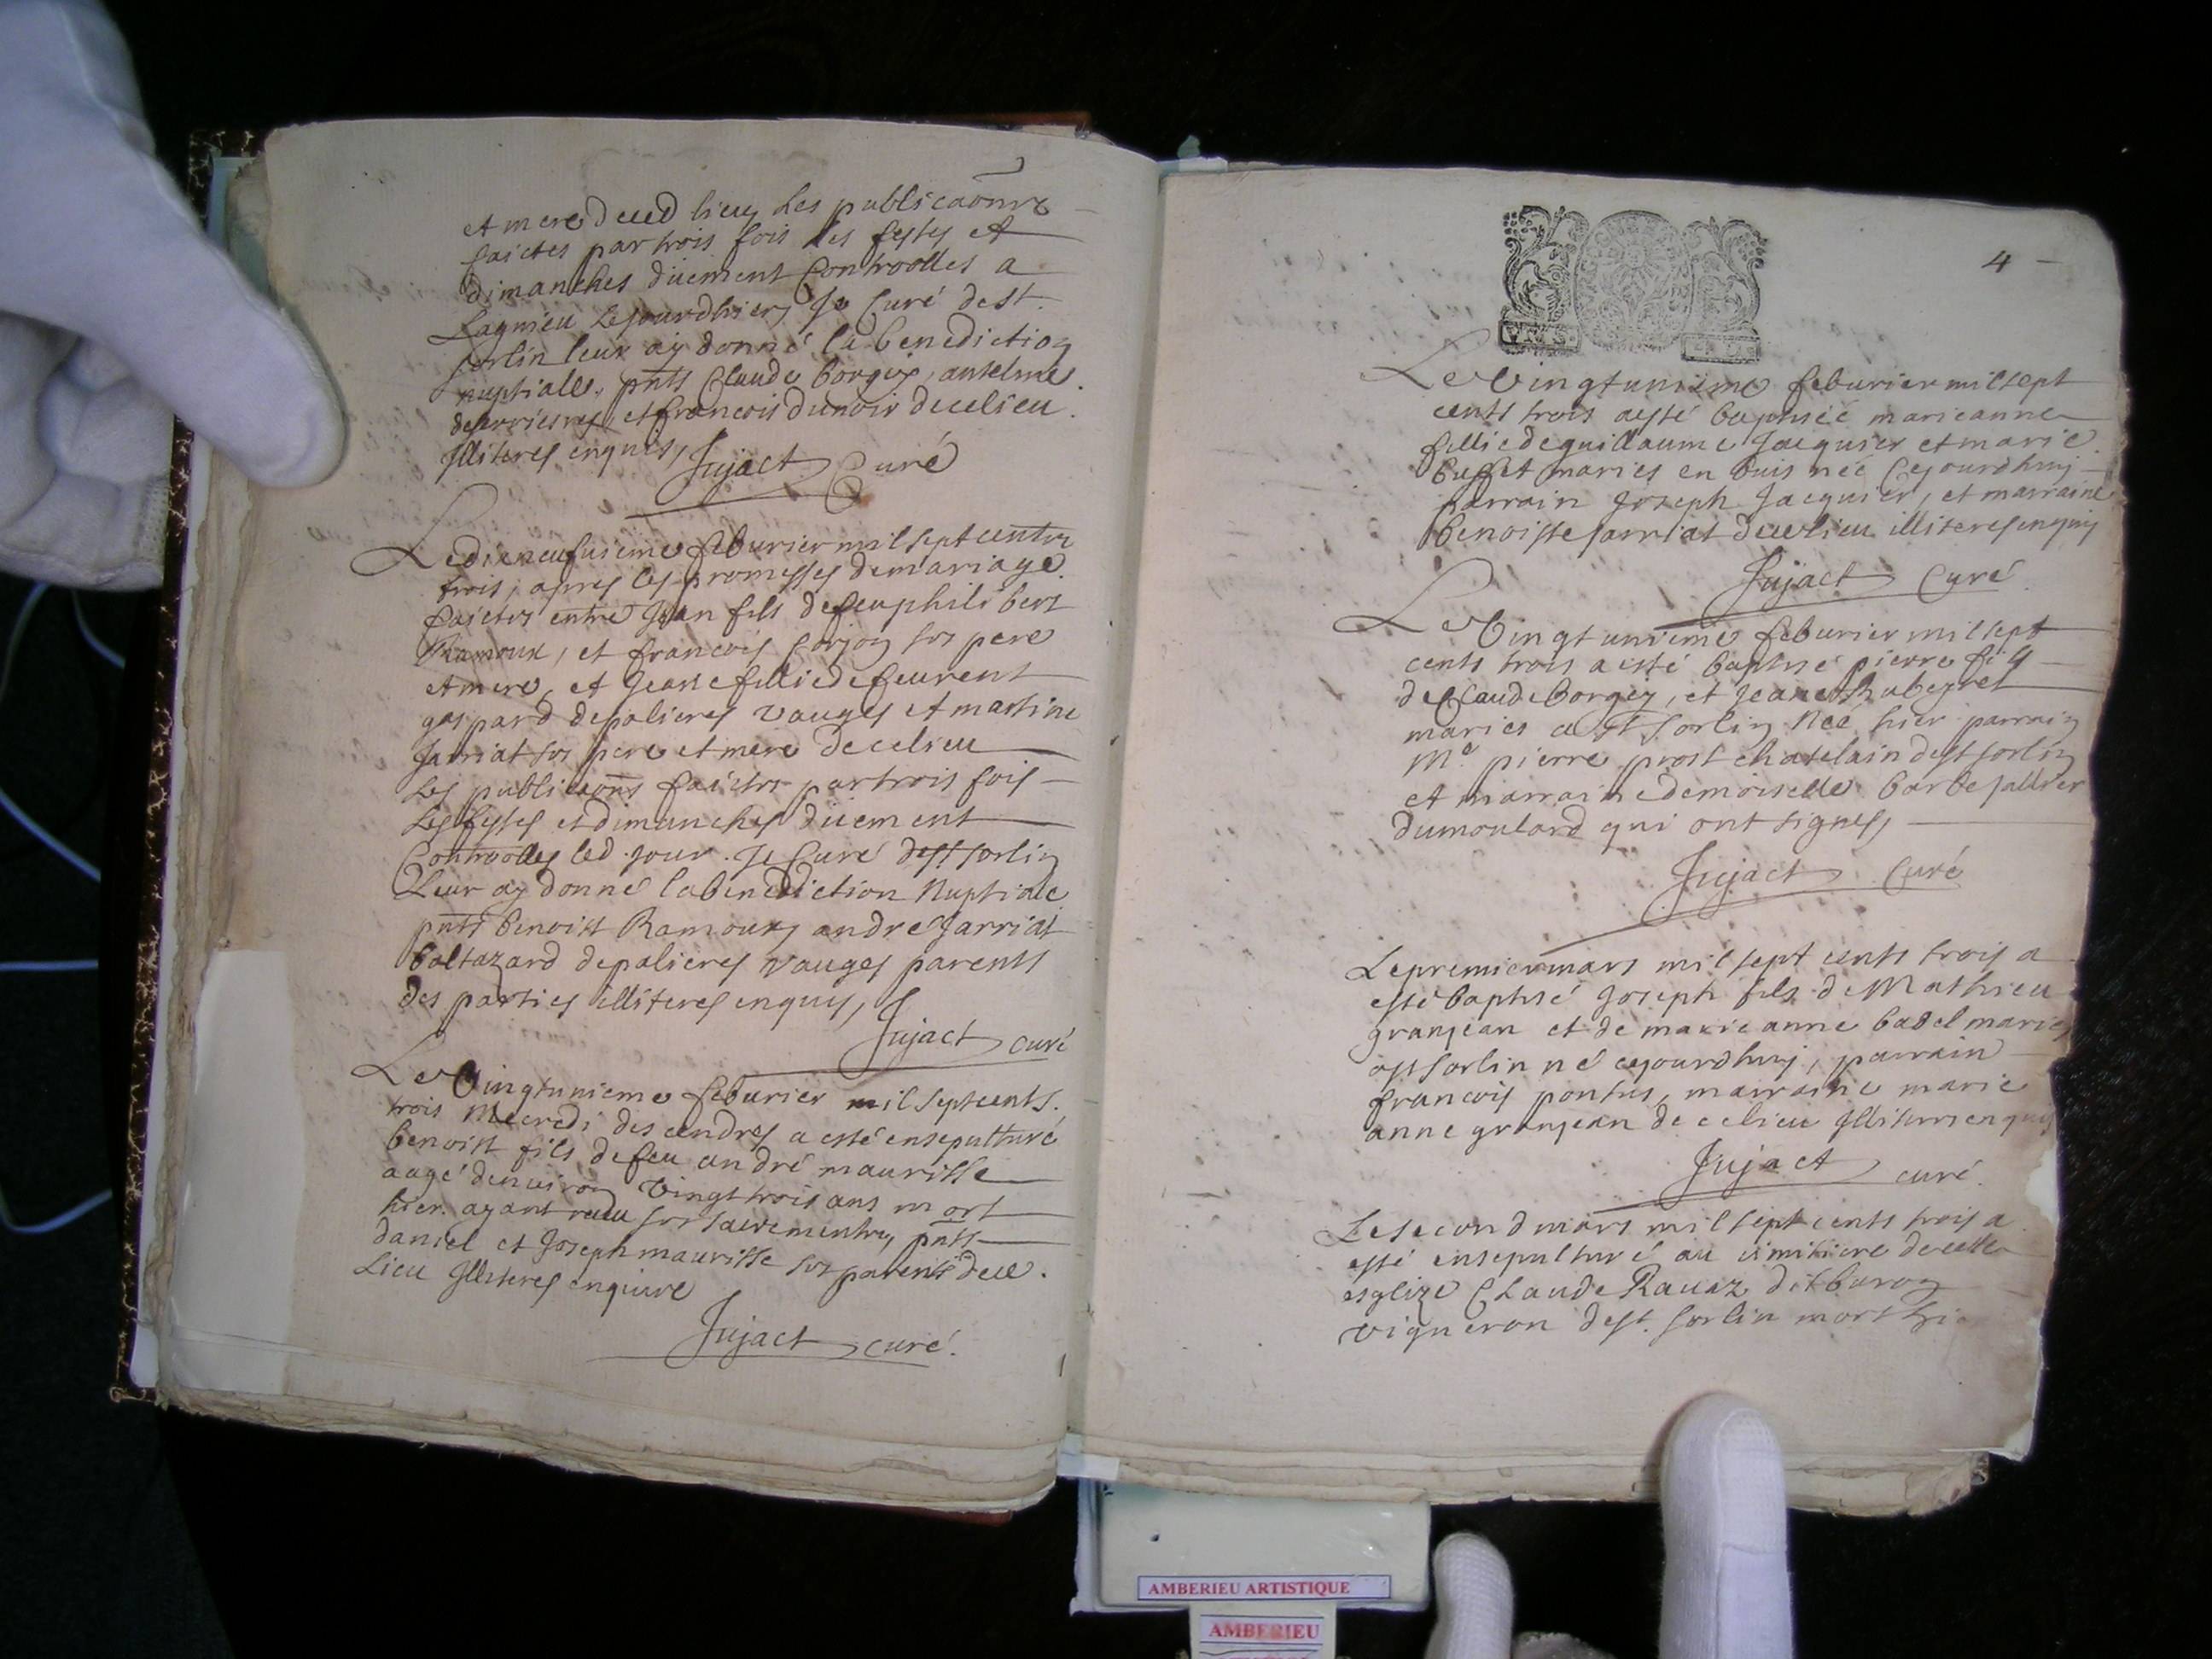 et mere dud lieu les publicaõns
faictes par trois fois les festes et
dimanches düement Controolles a
Lagnieu Cejourdhier Je Curé de st.
sorlin leur ay donné la benediction
nuptialle, pnts Claude borgey, anselme
et francois dunoir de ce lieu.
Illiteres enquis,
Jujact Curé
Le dixneufuieme feburier mil sept cents
trois, apres les promesses de mariage
faictes entre Jean fils de feu philibert
Ramoux, et francois Corjon ses pere
et mere, et Jeane fillie de feu rent
gaspard depalieres vauges et martine
Jarriat ses pere et mere de ce lieu
les publicaõns faictes par trois fois
les festes et dimanches düement
Controolles led. jour. Je Curé de st sorlin
Leur ay donné la benediction Nuptiale
pnts benoist Ramoux, andré Jarriat
baltazard depalieres vauges parents
des parties illiteres enquis,
Jujact curé
Le Vingtunieme feburier mil septcents.
trois Mecredi des cendres a esté ensepulturé
benoist fils de feu andré maurisse
aagé denuiron Vingt trois ans mort
hier. ayant receu ses sacrements, pnts
daniel et Joseph maurisse ses parents de ce.
Lieu Illiteres enquis
Jujact curé.
4
Le Vingtunieme feburier mil sept
cents trois a esté baptisée marieanne
fillie de guillaume Jacquier et marie
buffet maries en buis née Cejourdhuy
parrain Joseph Jacquier, et marraine
benoiste Jarriat de ce lieu illiteres enquis
Jujact Curé
Le Vingtunieme feburier mil sept
cents trois a esté baptisé pierre fils
de Claude Borgey, et Jeane Rubeyret
maries a st sorlin Née hier parrain
Me. pierre prost chatelain de st sorlin
et marraine demoiselle barbe
dumoulard qui ont signes
Jujact Curé
Le premier mars mil sept cents trois a
esté baptisé Joseph fils de Mathieu
granjean et de marie anne badel maries
a st sorlin né cejourdhuy, parrain
francois pontus, marraine marie
anne granjean de ce lieu Illiteres enquis
Jujact curé.
Le second mars mil sept cents trois a
esté ensepulturé au cimitiere de cette
esglize Claude Rauaz dit buron
vigneron de st. sorlin mort hier
AMBERIEU ARTISTIQUE
AMBERIEU